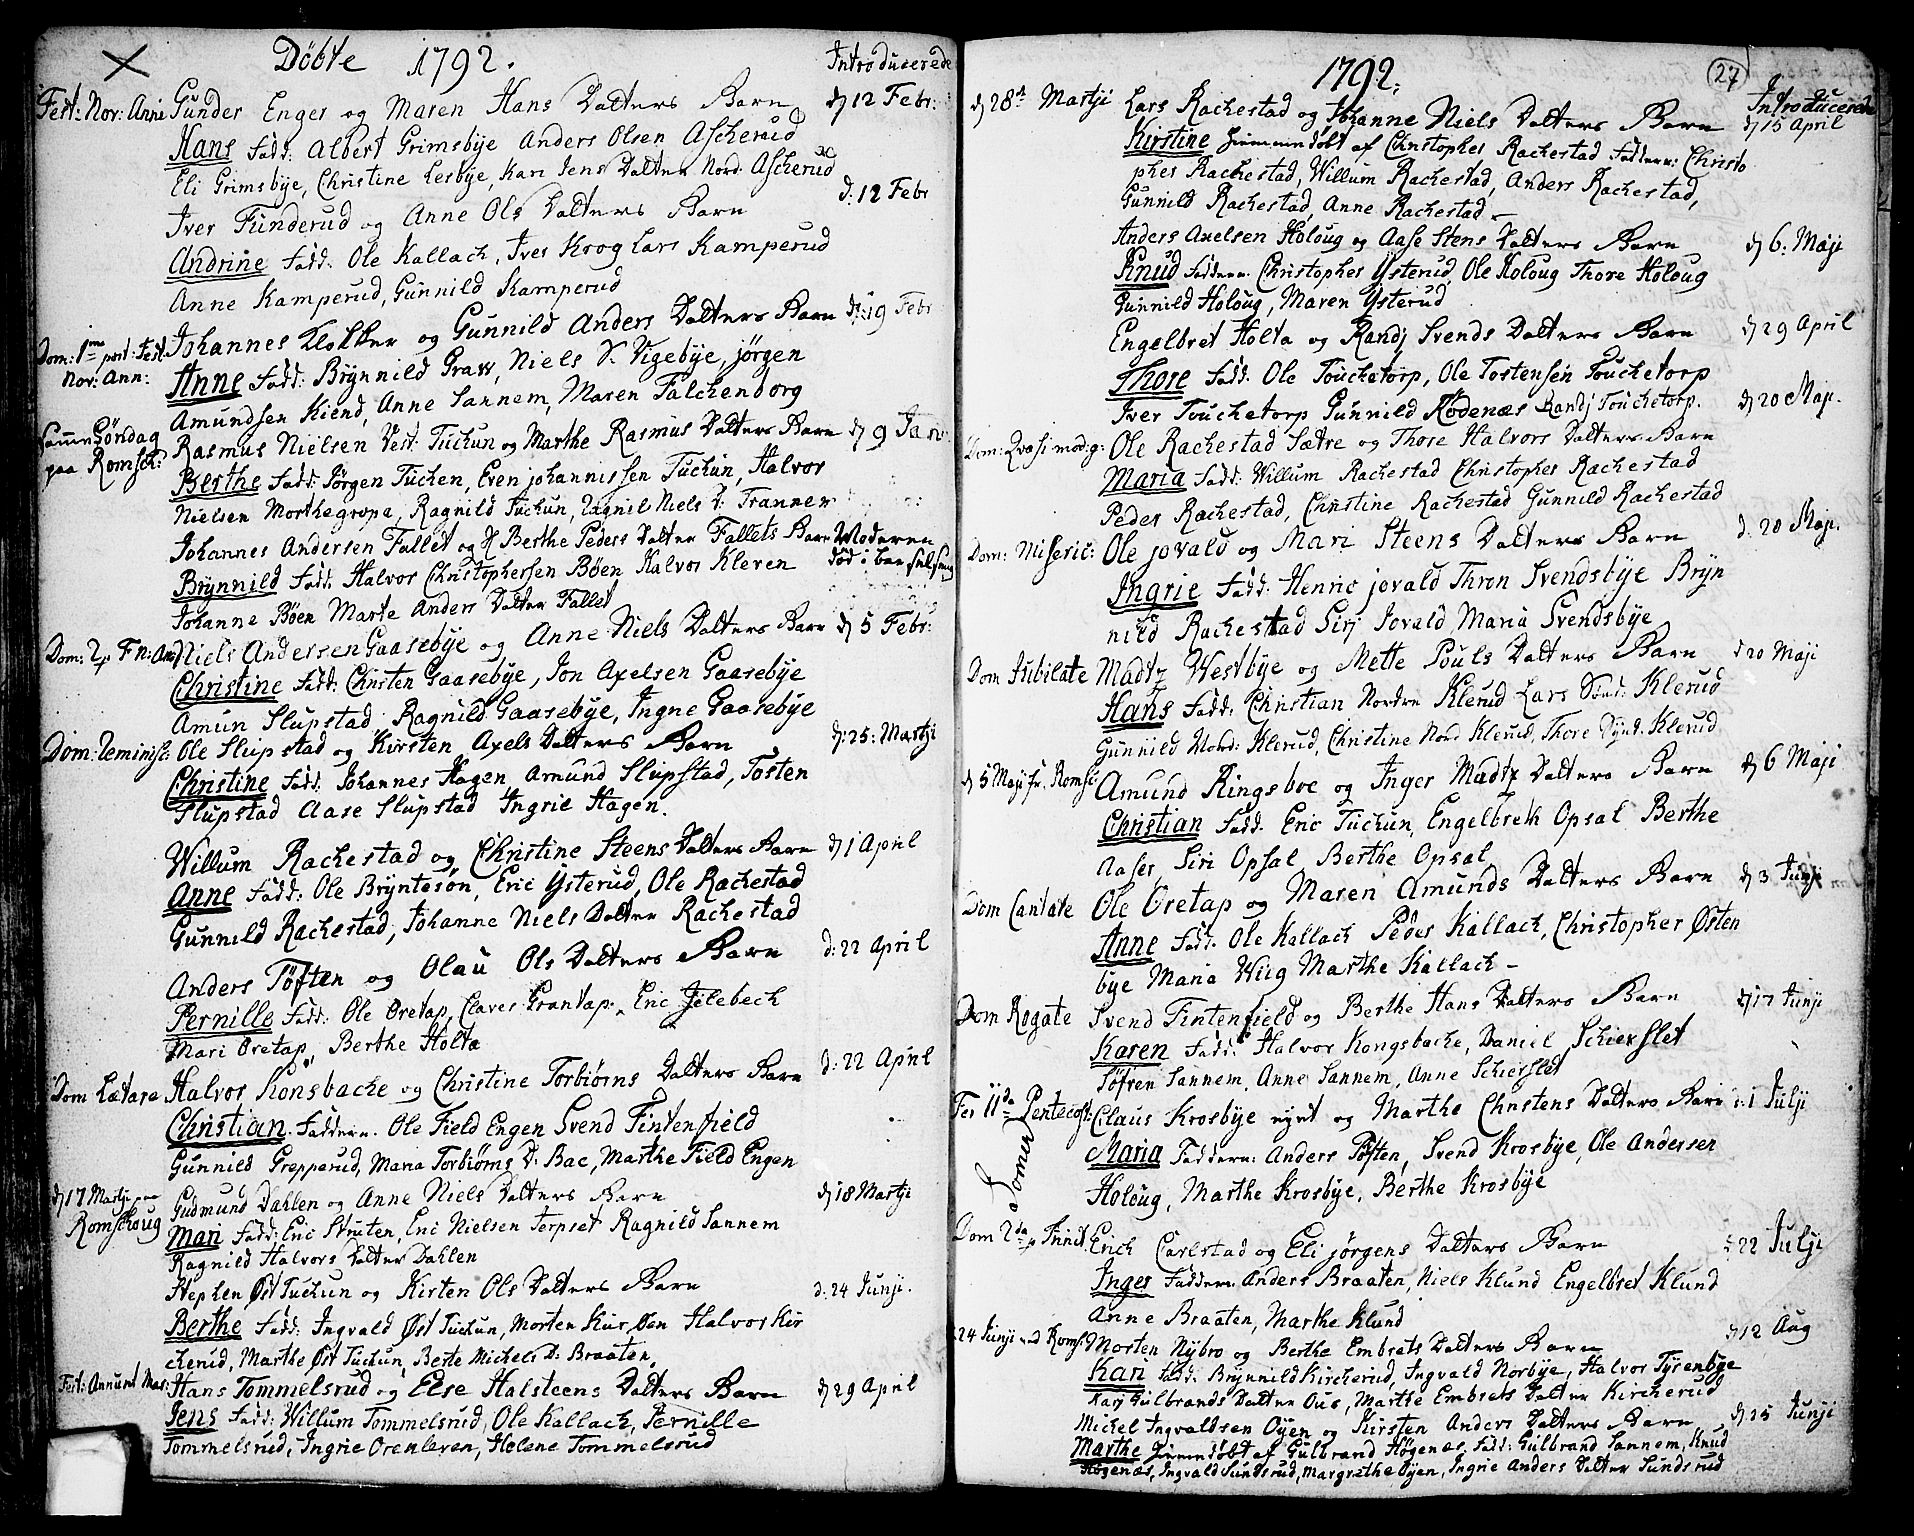 Döbte 1792.
Introducerede
Fest: Nor: Anni Gunder Enger og Maren Hans Datters Barn d 12 Febr:
Hans Fadd: Albert Grimsbye Anders Olsen Ascherud
Eli Grimsbye, Christine Lesbye, Kari Jens Datter Nord Ascherud
Iver Funderud og Anne Ols Datters Barn d: 12 Febr
Andrine Fadd: Ole Kallach, Iver Krog Lars Kamperud
Anne Kamperud, Gunnild Kamperud
Dom: 1me post: Fest Nor: Ann: Johannes Klokker og Gunnild Anders Datters Barn d: 19 Febr
Anne Fadd: Brynnild Graw, Niels S. Vigebye, jörgen
Amundsen Kiend, Anne Sannem, Maren Falchenborg
Samm Söndag paa Romsch: Rasmus Nielsen Vest: Tuchun og Marthe Rasmus Datters Barn d 9 Jan
Berthe Fadd: Jörgen Tuchen, Even johannissen Tuchun, Halvor
Nielsen Morthegropa, Ragnild Tuchun, Ragnil Niels D: Trannem
Johannes Andersen Fallet og Berthe Peders Datter Fallets Barn Moderen
Brynnild Fadd: Halvor Christophersen Böen Halvor Kleven död i barselseng
Johanne Böen Marte Anders Datter Fallet
Dom: 2 p F N: An: Niels Andersen Gaasebye og Anne Niels Datters Barn d 5 Febr:
Christine Fadd: Christen Gaasebye, Jon Axelsen Gaasebye
Amun Slupstad Ragnild Gaasebye, Ingne Gaasebye
Dom: Reminisc: Ole Slupstad og Kirsten Axels Datters Barn d: 25: Martji
Christine Fadd: Johannes Hagen, Amund Slupstad, Tosten
Slupstad Aase Slupstad Ingrie Hagen.
Willum Rachestad og Christine Steens Datters Barn d 1 April
Anne Fadd: Ole Bryntesön, Eric Ysterud, Ole Rachestad
Gunnild Rachestad, Johanne Niels Datter Rachestad
Anders Töften og Olau Ols Datters Barn d: 22 April
Pernille Fadd: Ole Oretap, Claves Grantap, Eric Jilebech
Mari Oretap, Berthe Holta
Dom Lætare Halvor Konsbacke og Christine Torbiörns Datters Barn d: 22 April
Christian. Faddern. Ole Field Engen Svend Tintenfield
Gunnild Grepperud, Maria Torbiörns D: Bac, Marthe Field Engen
d 17 Martji Romschoug Gudmund Dahlen og Anne Niels Datters Barn d 18 Martji
Mari Fadd: Eric Struten, Eric Nielsen Terpset Ragnild Sannem
Ragnild Halvors Datter Dahlen
Stephen Øst Tuchun og Kirsten Ols Datters Barn d: 24 Junji.
Berthe Fadd: Ingvald Øst Tuchun, Morten Kur Øen Halvor Kir
cherud, Marthe Øst Tuchun, Berte Michels D: Braaten,
Fest: Annunt Mar: Hans Tommelsrud og Else Halsteens Datters Barn d 29 April
Jens Fadd: Willum Tommelsrud, Ole Kallach, Pernille
Tommelsrud, Ingrie Orenleven, Helene Tommelsrud
1792.
27
Introducerede
d 28d Martji Lars Rachestad og Johanne Niels Datters Barn d 15 April
Kirstine hiemmedöbt af Christopher Rachestad Faddern: Christo
pher Rachestad, Willum Rachestad, Anders Rachestad,
Gunnild Rachestad, Anne Rachestad –
Anders Axelsen Holoug og Aase Stens Datters Barn d 6: Maji
Knud Faddern. Christopher Ysterud, Ole Holoug Thore Holoug
Gunnild Holoug, Maren Ysterud
Engelbret Holta og Randj Svends Datters Barn d 29 April
Thore Fadd. Ole Touchetorp, Ole Tostensen Touchetorp
Iver Touchetorp Gunnild Rödenæs Randj Touchetorp.
Dom: Qvasi mod:g: Ole Rachestad Sætre og Thore Halvors Datters Barn d 20 Maji.
Maria Fadd: Willum Rachestad Christopher Rachestad
Peder Rachestad, Christine Rachestad Gunnild Rachestad
Dom: Miseric: Ole jovald og Mari Steens Datters Barn d. 20 Maji.
Ingrie Fadd: Henric jovald Thron Svendsbye Bryn
nild Rachestad Sirj Jovald Maria Svendsbye
Dom Jubilate Madtz Westbye og Mette Pouls Datters Barn d 20 Maji
Hans Fadd: Christian Nordre Klerud Lars Sönd: Klerud
Gunnild Nord: Klerud, Christine Nord Klerud, Thore Synd: Klerud
d 5 Maji fr. Romsc: Amund Ringsboe og Inger Madtz Datters Barn d 6 Maji
Christian Fadd. Eric Tuchun, Engelbreth Opsal Berthe
Naser, Siri Opsal Berthe Opsal
Dom Cantate Ole Oretap og Maren Amunds Datters Barn d 3 Junji
Anne Fadd. Ole Kallach Peder Kallach, Christopher Østen
bye Maria Wiig Marthe Kallach –
Dom Rogate Svend Tintenfield og Berthe Hans Datters Barn d 17 Junji
Karen Fadd: Halvor Kongsbacke, Daniel Schierslet
Söfren Sannem, Anne Sannem, Anne Schierslet
Fer 11da Pentecost: Claus Krosbye og Marthe Christens Datters Barn d: 1 Julji
Maria Faddern: Anders Töften, Svend Krosbye, Ole Andersen
Holoug, Marthe Krosbye, Berthe Krosbye
Dom 2da p Trinit. Erich Carlstad og Eli jörgens Datters Barn d 22 Julji
Inger Faddern: Anders Braaten, Niels Klund Engelbret Klund
Anne Braaten, Marthe Klund
24 Junji Romsc: Morten Nybro og Berthe Embrets Datters Barn d 12 Aug
Kari Fadd: Brynnild Kircherud, Ingvald Norbye, Halvor Tyrenbye
Kari Gulbrands Datter Ous, Marthe Embrets Datter Kircherud
Michel Ingvaldsen Oyen og Kirsten Anders Datters Barn d 25 Junji
Marthe hiemmedöbt af Gulbrand Högenæs, Fadd: Gulbrand Sannem, Knud
Högenæs, Ingvald Sundsrud, Margrethe Øyen, Ingrie Anders Datter Sundsrud